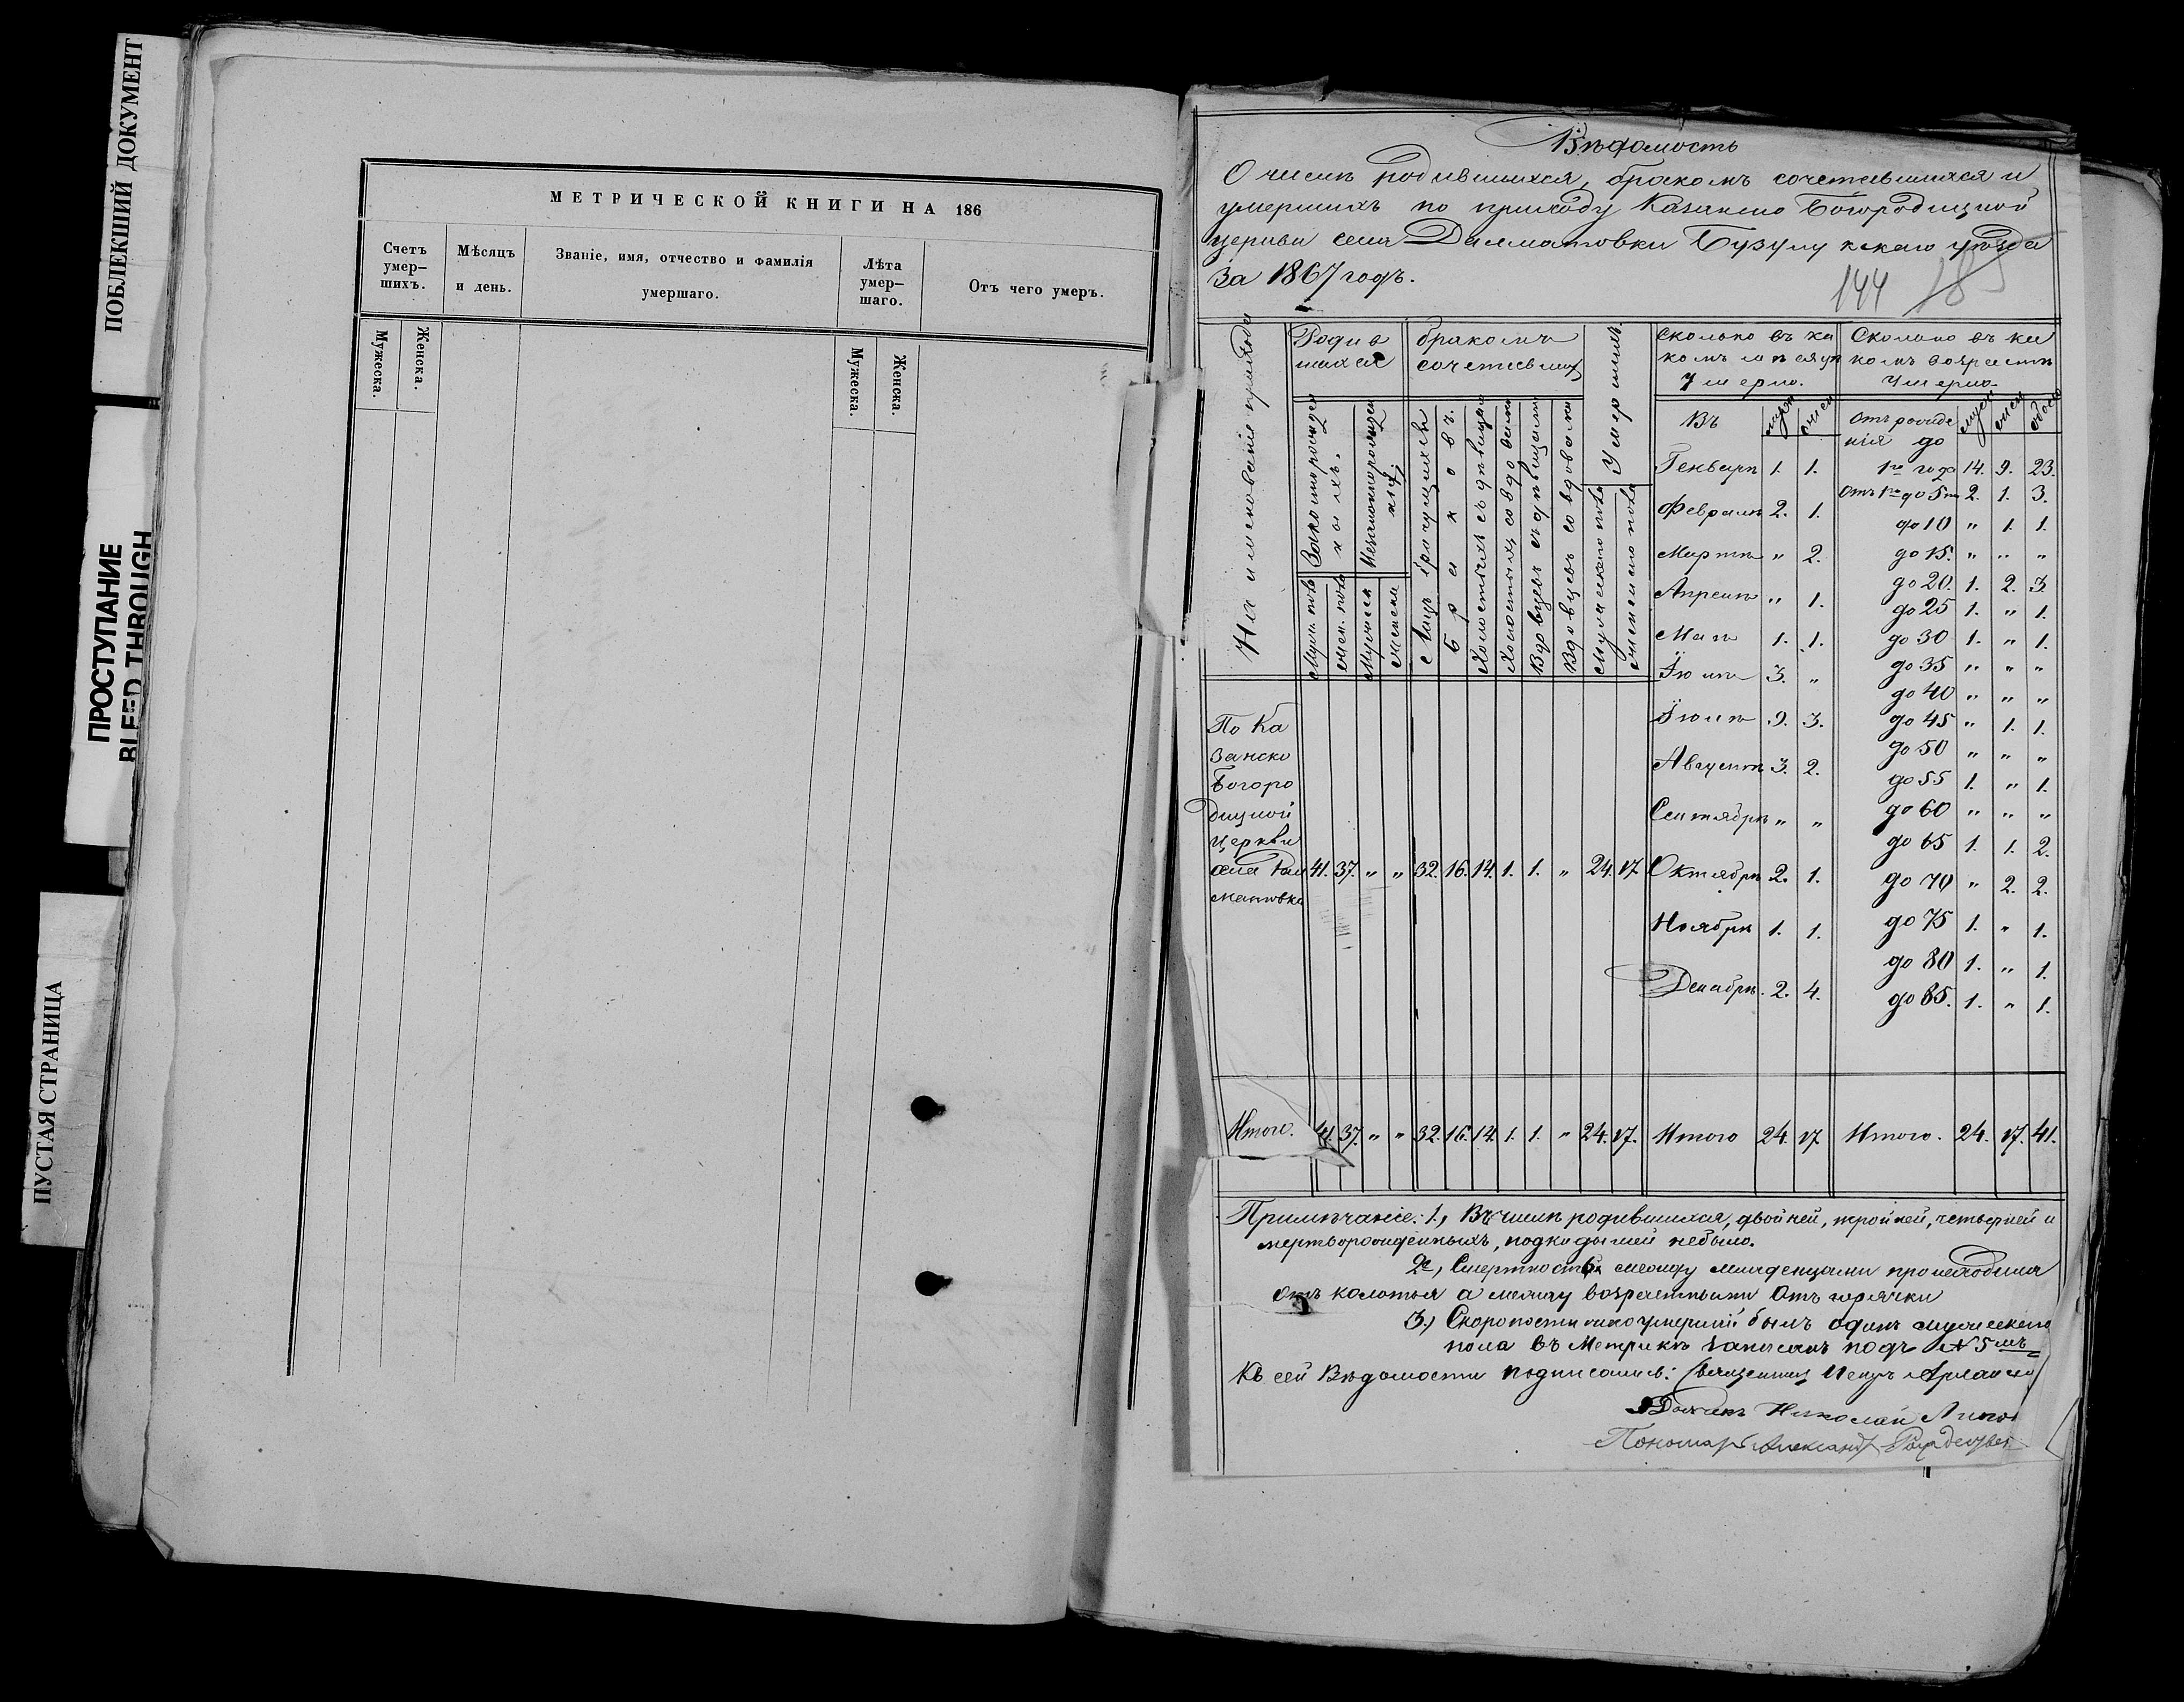 ПОБЛЕКШИЙ ДОКУМЕНТ
ПРОСТУПАНИЕ
BLEED THROUGH
ПУСТАЯ СТРАНИЦА
МЕТРИЧЕСКОЙ КНИГИ НА 186
Счетъ умер–шихъ.
Мѣсяцъ и день.
Званіе, имя, отчество и фамилія умершаго.
Лѣта умер–шаго.
Отъ чего умеръ.
Мужеска.
Женска.
Мужеска.
Женска.
Вѣдомость
О числѣ родившихся, бракомъ сочетавшихся и
умершихъ по приходу Казанско Богородицкой
церкви села Далматовки Бузулукскаго уѣзда
За 1867 годъ.
144
Наименованіе прихода
Родив шихся
бракомъ сочетавших
Умершихъ.
Сколько въ ка комъ мѣсяцѣ умерло.
Сколько въ ка комъ возрастѣ умерло
Лицъ брачущихся
Браковъ.
Холостыхъ съ дѣвицами
Холостыхъ со вдовами
Вдовцевъ съ дѣвицами
Вдовцевъ со вдовами
Мужескаго пола
Женскаго пола
Муж. пола
Жен. пола
Мужеска
Женска
Въ
Отъ рожде нія до
Генварѣ 1. 1.
1го года 14. 9. 23.
Отъ 1го до 5ти 2. 1. 3.
Февралѣ 2. 1.
до 10 „ 1. 1.
Мартѣ „ 2.
до 15. „ „ „
Апрелѣ „ 1.
до 20. 1. 2. 3
до 25 1. „ 1.
Маѣ 1. 1.
до 30 1. „ 1.
Іюнѣ 3. „
до 35 „ „ „
до 40 „ „ „
Іюлѣ 9. 3.
до 45 „ 1. 1.
до 50 „ „ „
Августѣ 3. 2.
до 55 1. „ 1.
Сентябрѣ „ „
до 60 „ „ „
до 65 1. 1. 2.
По Ка
занско
Богоро
дицкой
Церкви
села Дал
матовки
41. 37. „ „ 32. 16. 14. 1. 1. „ 24. 17
Октябрѣ 2. 1.
до 70 „ 2. 2.
Ноябрѣ 1. 1.
до 75 1. „ 1.
до 80 1. „ 1.
Декабрѣ. 2. 4.
до 85. 1. „ 1.
Итого. 41. 37. „ „ 32. 16. 14. 1. 1. „ 24. 17. Итого 24. 17 Итого. 24. 17. 41.
Примѣчаніе: 1., Въ числѣ родившихся, двойней, тройней, четверней и
мертворожденныхъ, подкидышей небыло.
2е, Смертность между младенцами происходила
отъ колотья а между возрастными отъ горячки
3.) Скоропостижно умершій былъ одинъ мужескаго
пола въ Метрикѣ записанъ подъ № 5 мъ
Къ сей Вѣдомости подписались: Священникъ
Дьячекъ Николай
Пономарь Александръ